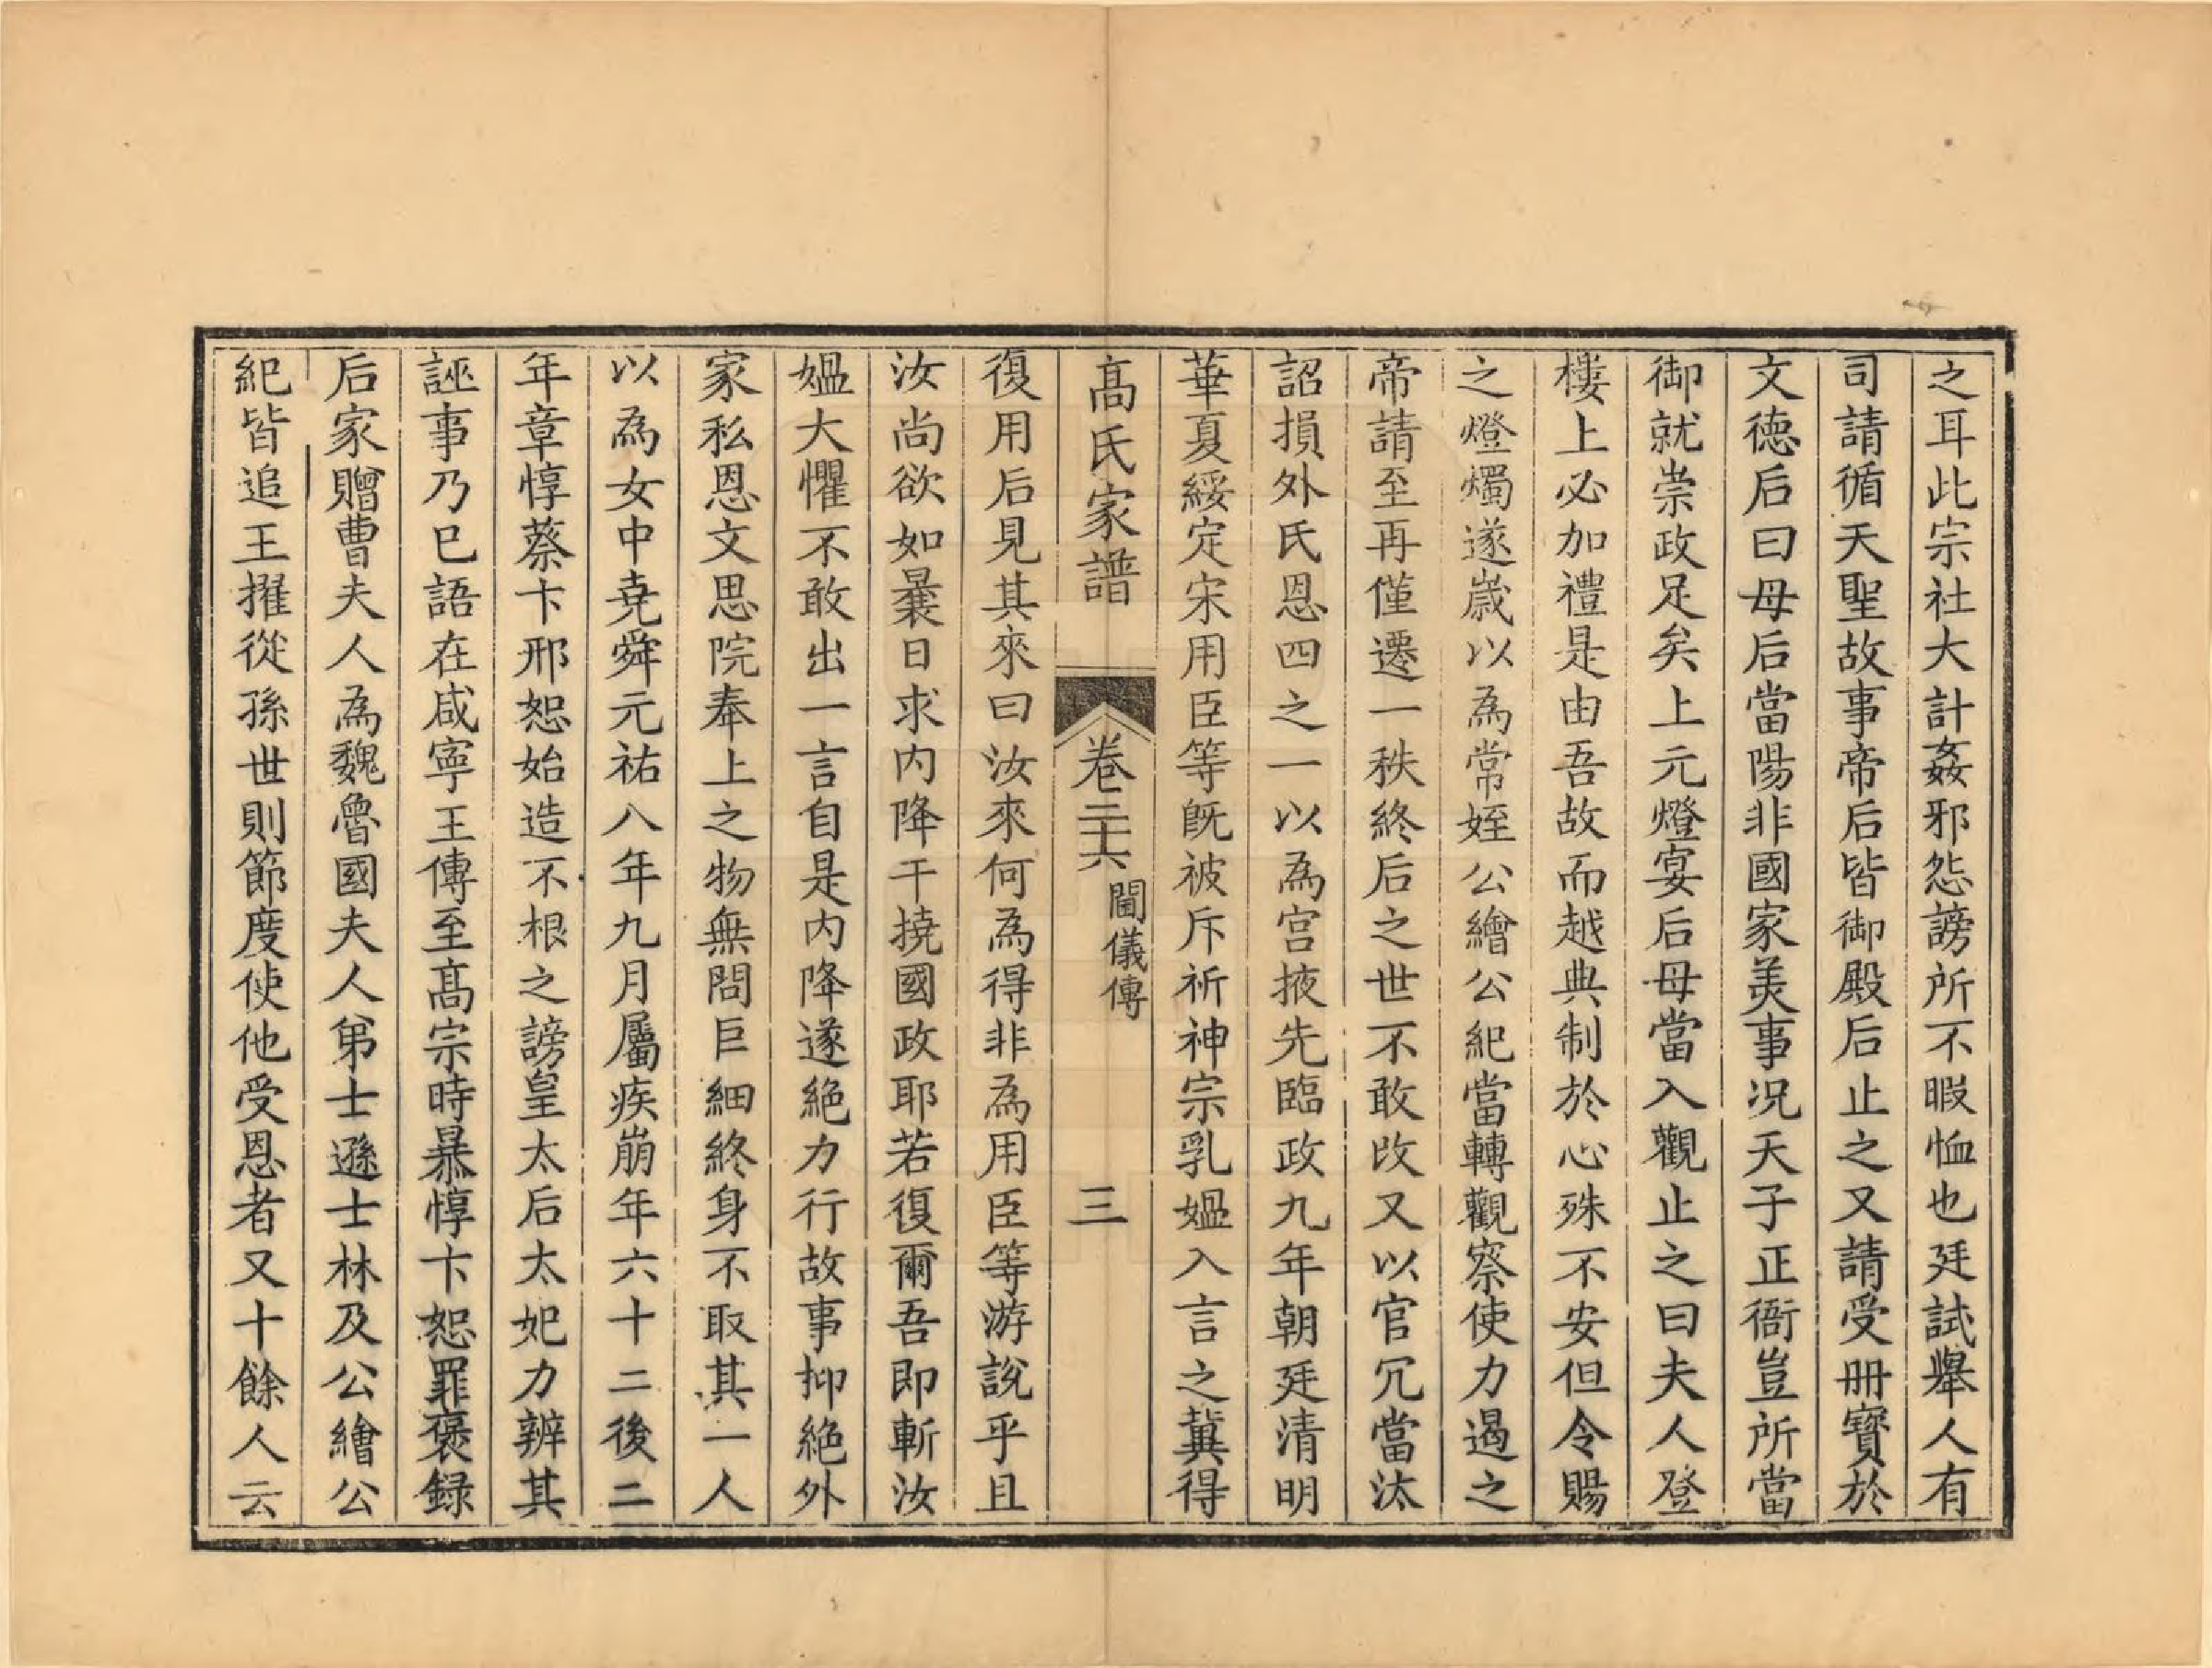 之耳此宗社大計姦邪怨謗所不暇恤也廷試舉人有
司請循天聖故事帝后皆御殿后止之又請受冊寶於
文德后曰母后當陽非國家美事况天子正衙豈所當
御就崇政足矣上元燈宴后母當入觀止之曰夫人登
樓上必加禮是由吾故而越典制於心殊不安但令賜
之燈燭遂歲以為常姪公繪公紀當轉觀察使力遏之
帝請至再僅遷一秩終后之世不敢改又以官冗當汰
詔損外氏恩四之一以為宮掖先臨政九年朝廷清明
華夏綏定宋用臣等旣被斥祈神宗乳媼入言之冀得
高氏家譜 卷二十六 閫儀傳 三
復用后見其來曰汝來何為得非為用臣等游說乎且
汝尚欲如曩日求内降干撓國政耶若復爾吾即斬汝
媼大懼不敢出一言自是内降遂絕力行故事抑絕外
家私恩文思院奉上之物無問巨細終身不取其一人
以為女中堯舜元祐八年九月屬疾崩年六十二後二
年章惇蔡卞邢恕始造不根之謗皇太后太妃力辨其
誣事乃已語在咸寧王傳至高宗時暴惇卞恕罪褒録
后家贈曹夫人為魏魯國夫人弟士遜士林及公繪公
紀皆追王擢從孫世則節度使他受恩者又十餘人云